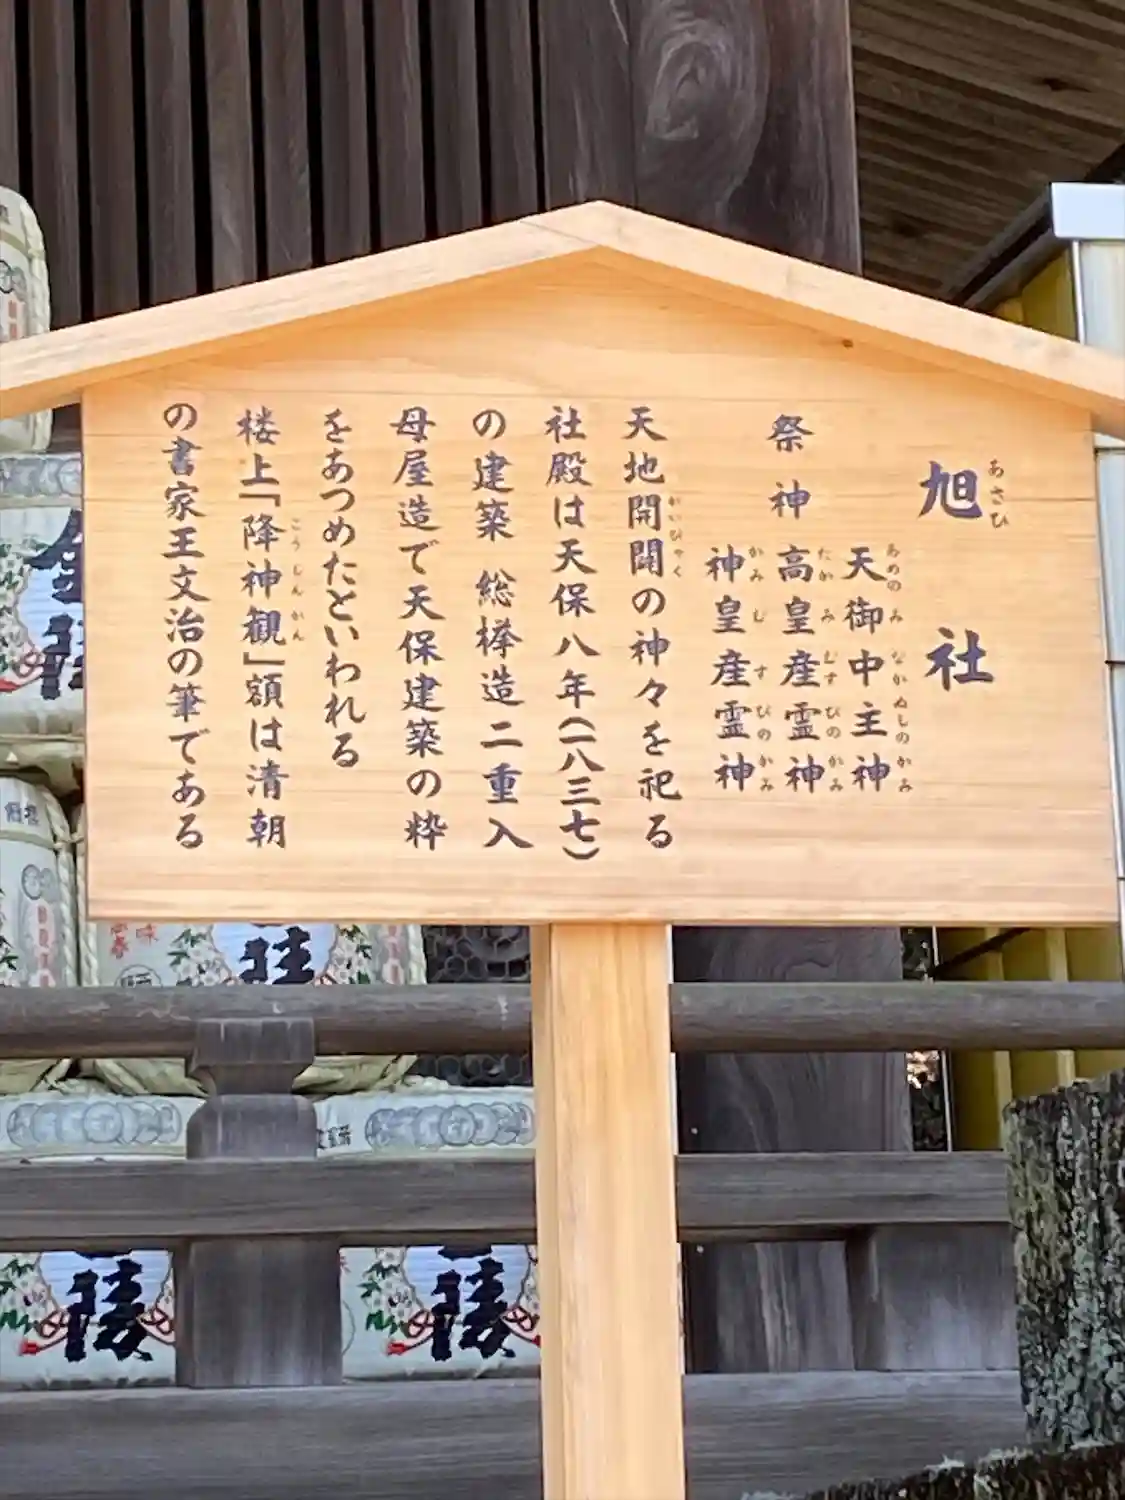 旭社
あさひ
祭神
天御中主神
あめのみなかぬしのかみ
高皇産霊神
たかみむすびのかみ
神皇産霊神
かみむすびのかみ
天地開闢の神々を祀る
かいびゃく
社殿は天保八年(一八三七)
の建築 総欅造二重入
母屋造で天保建築の粋
をあつめたといわれる
楼上「降神観」額は清朝
こうしんかん
の書家王文治の筆である